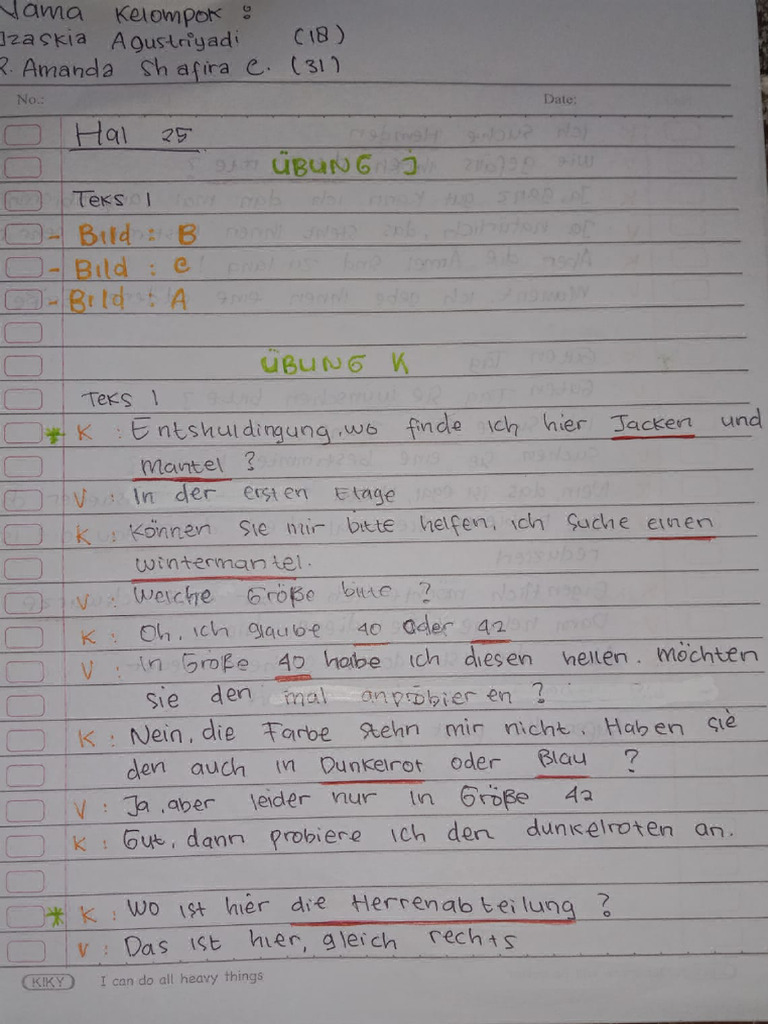 Nama Kelompok :
Izaskia Agustriyadi (18)
2. Amanda Shafira C. (31)
No.: Date:
Hal 25
ÜBUNG J
Teks 1
- Bild : B
- Bild : C
- Bild : A
ÜBUNG K
Teks 1
* K : Entshuldingung, wo finde ich hier Jacken und
mantel ?
V : In der ersten Etage
K : Können sie mir bitte helfen, ich suche einen
wintermantel.
V : Welche Größe bitte ?
K : Oh, ich glaube 40 oder 42
V : In Größe 40 habe ich diesen hellen. möchten
sie den mal anprobieren ?
K : Nein, die Farbe stehn mir nicht. Haben sie
den auch in Dunkelrot oder Blau ?
V : Ja, aber leider nur in Größe 42
K : Gut, dann probiere ich den dunkelroten an.
* K : Wo ist hier die Herrenabteilung ?
V : Das ist hier, gleich rechts
KIKY I can do all heavy things